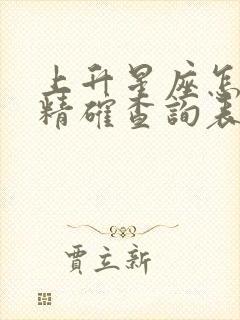 上升星座怎
精確查詢表
賈立新